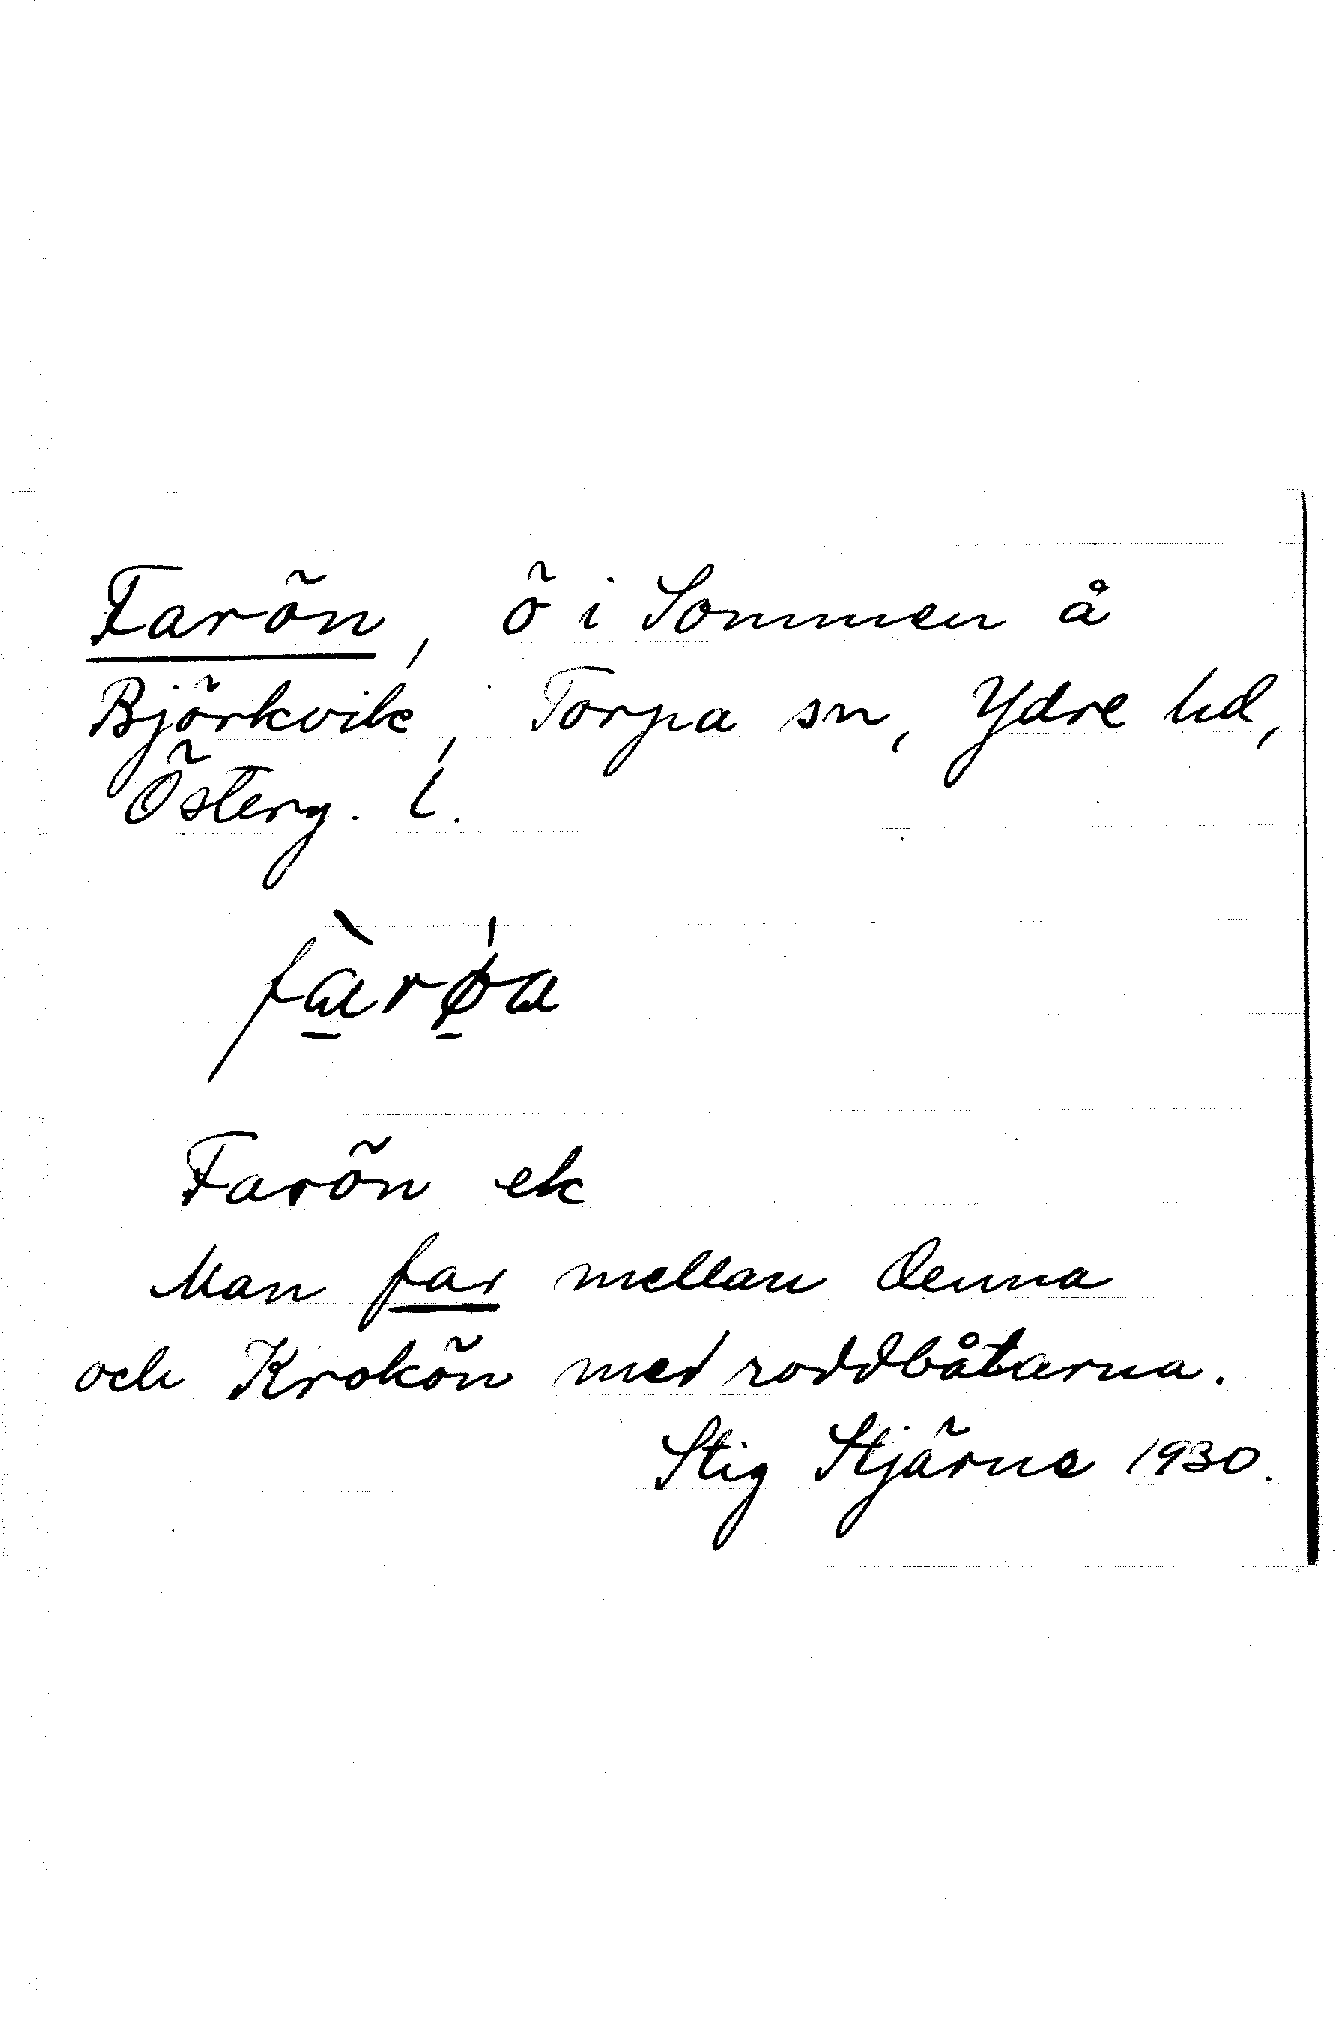 Farön, ö i Sommen å
Björkvik, Torpa sn, Ydre hd,
Österg. l.
fàrøa
Farön ek
Man far mellan denna
och Krokön med roddbåtarna.
Stig Stjärne 1930.